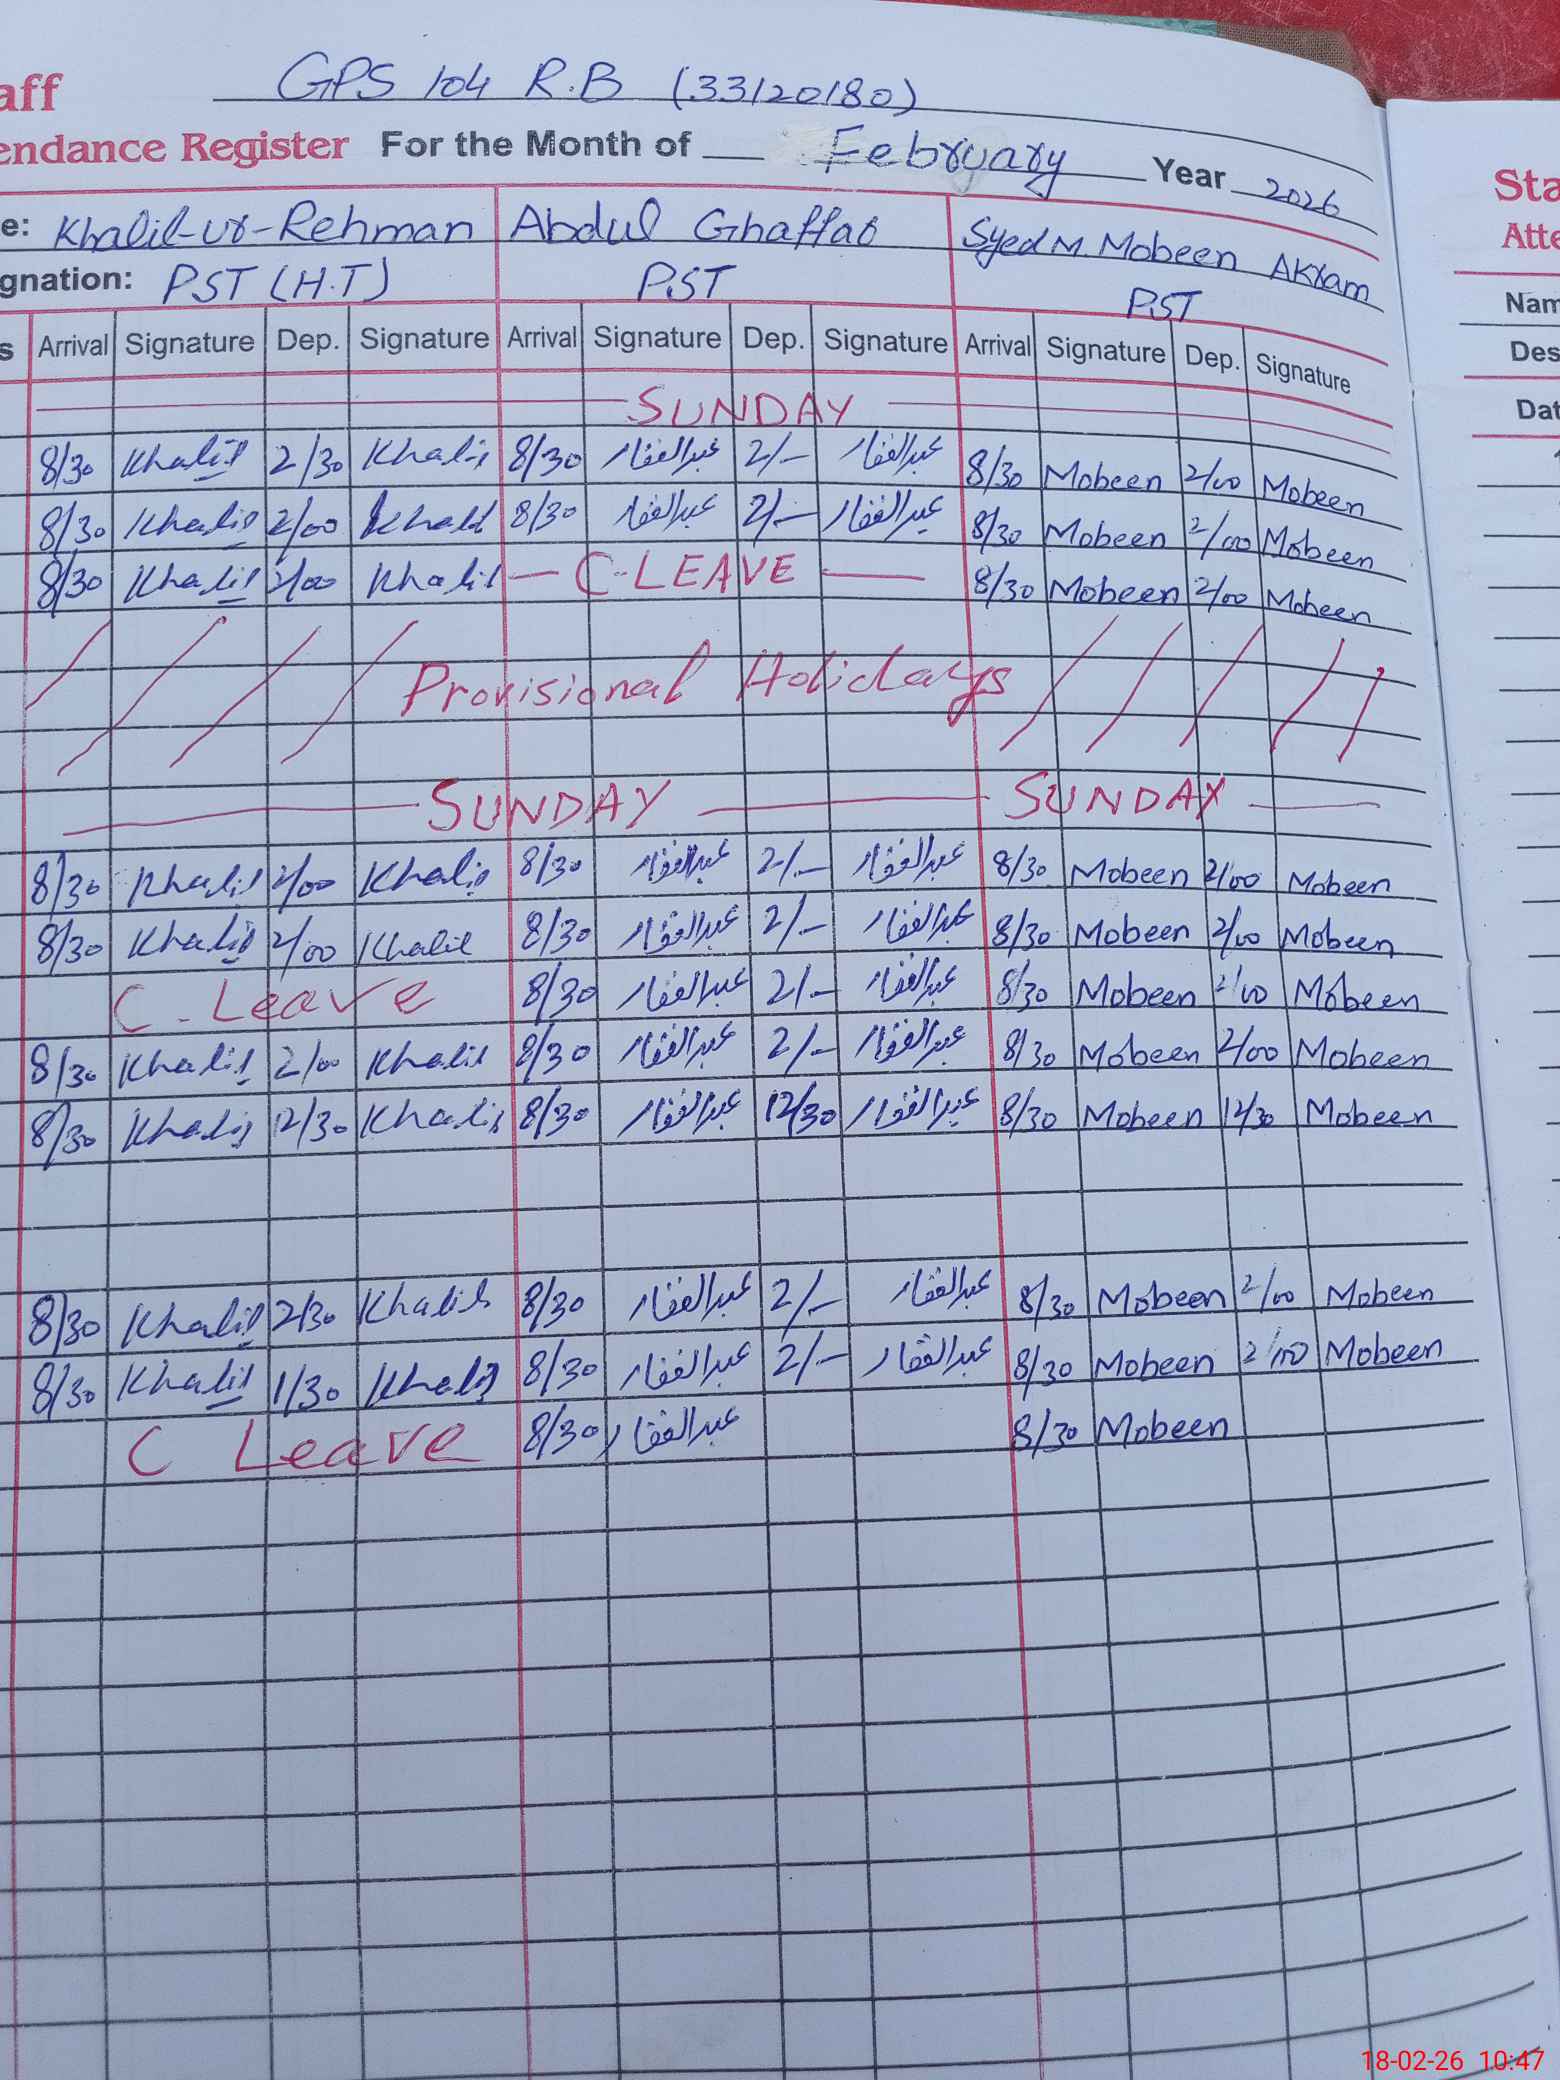 aff GPS 104 R.B (33120180)
endance Register For the Month of February Year 2026
e: Khalil-ur-Rehman Abdul Ghaffar Syed M. Mobeen Akram
gnation: PST (H.T) PST PST
s Arrival Signature Dep. Signature Arrival Signature Dep. Signature Arrival Signature Dep. Signature
SUNDAY
8/30 Khalil 2/30 Khalil 8/30 عبدالغفار 2/- عبدالغفار 8/30 Mobeen 2/00 Mobeen
8/30 Khalil 2/00 Khalil 8/30 عبدالغفار 2/- عبدالغفار 8/30 Mobeen 2/00 Mobeen
8/30 Khalil 2/00 Khalil C-LEAVE 8/30 Mobeen 2/00 Mobeen
Provisional Holidays
SUNDAY SUNDAY
8/30 Khalil 2/00 Khalil 8/30 عبدالغفار 2/- عبدالغفار 8/30 Mobeen 2/00 Mobeen
8/30 Khalil 2/00 Khalil 8/30 عبدالغفار 2/- عبدالغفار 8/30 Mobeen 2/00 Mobeen
C-Leave 8/30 عبدالغفار 2/- عبدالغفار 8/30 Mobeen 2/00 Mobeen
8/30 Khalil 2/00 Khalil 8/30 عبدالغفار 2/- عبدالغفار 8/30 Mobeen 2/00 Mobeen
8/30 Khalil 12/30 Khalil 8/30 عبدالغفار 12/30 عبدالغفار 8/30 Mobeen 12/30 Mobeen
8/30 Khalil 2/30 Khalil 8/30 عبدالغفار 2/- عبدالغفار 8/30 Mobeen 2/00 Mobeen
8/30 Khalil 1/30 Khalil 8/30 عبدالغفار 2/- عبدالغفار 8/30 Mobeen 2/00 Mobeen
C Leave 8/30 عبدالغفار 8/30 Mobeen
Sta
Atte
Nam
Des
Dat
18-02-26 10:47